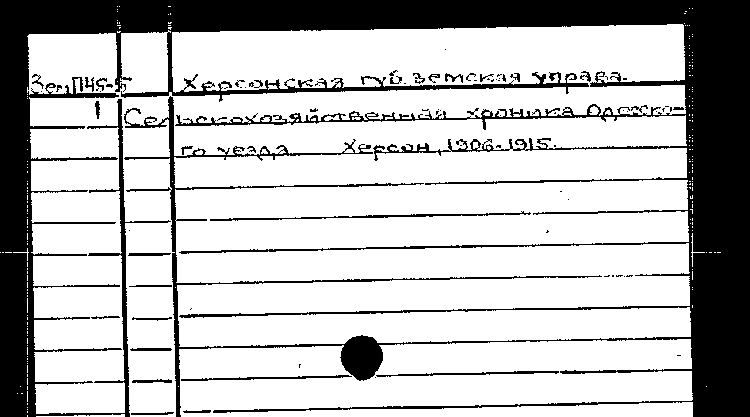 Зем,П45-5 Херсонская губ. земская управа.
1 Сельскохозяйственная хроника Одесско-
го уезда Херсон, 1906-1915.